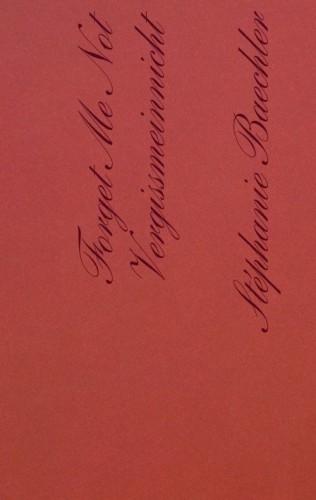 Forget Me Not
Vergissmeinnicht
Stéphanie Baechler